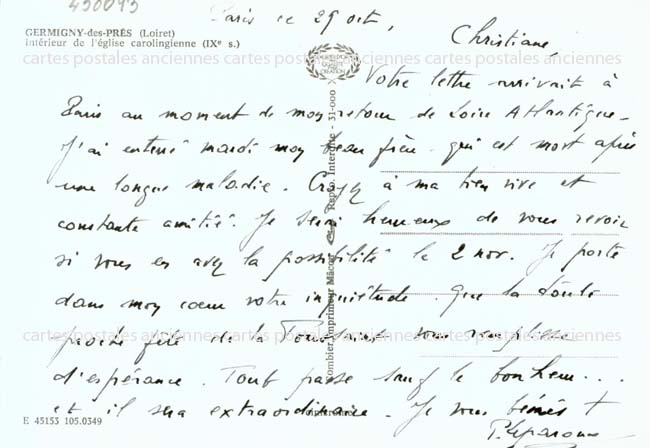 450093
Paris ce 29 oct,
GERMIGNY-des-PRÉS (Loiret)
Intérieur de l'église carolingienne (IXe s.)
Christiane,
cartes postales anciennes cartes postales anciennes cartes postales anciennes
Votre lettre arrivait à
Paris au moment de mon retour de Loire Atlantique.
J'ai enterré mardi mon beau frère qui est mort après
une longue maladie. Croyez à ma bien vive et
constante amitié. Je serai heureux de vous revoir
si vous en avez la possibilité le 2 nov. Je porte
dans mon coeur votre inquiétude. Que la
cartes postales anciennes cartes postales anciennes cartes postales anciennes
fête de la Toussaint vous remplisse
d'espérance. Tout passe sauf le bonheur...
et il sera extraordinaire. Je vous bénis +
E 45153 105.0349
P.
Combier Imprimeur Mâcon
Repro. Interdite - 31-000